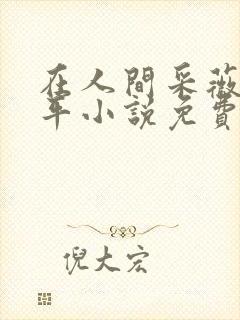 在人間采薇
年小說免費
倪大宏